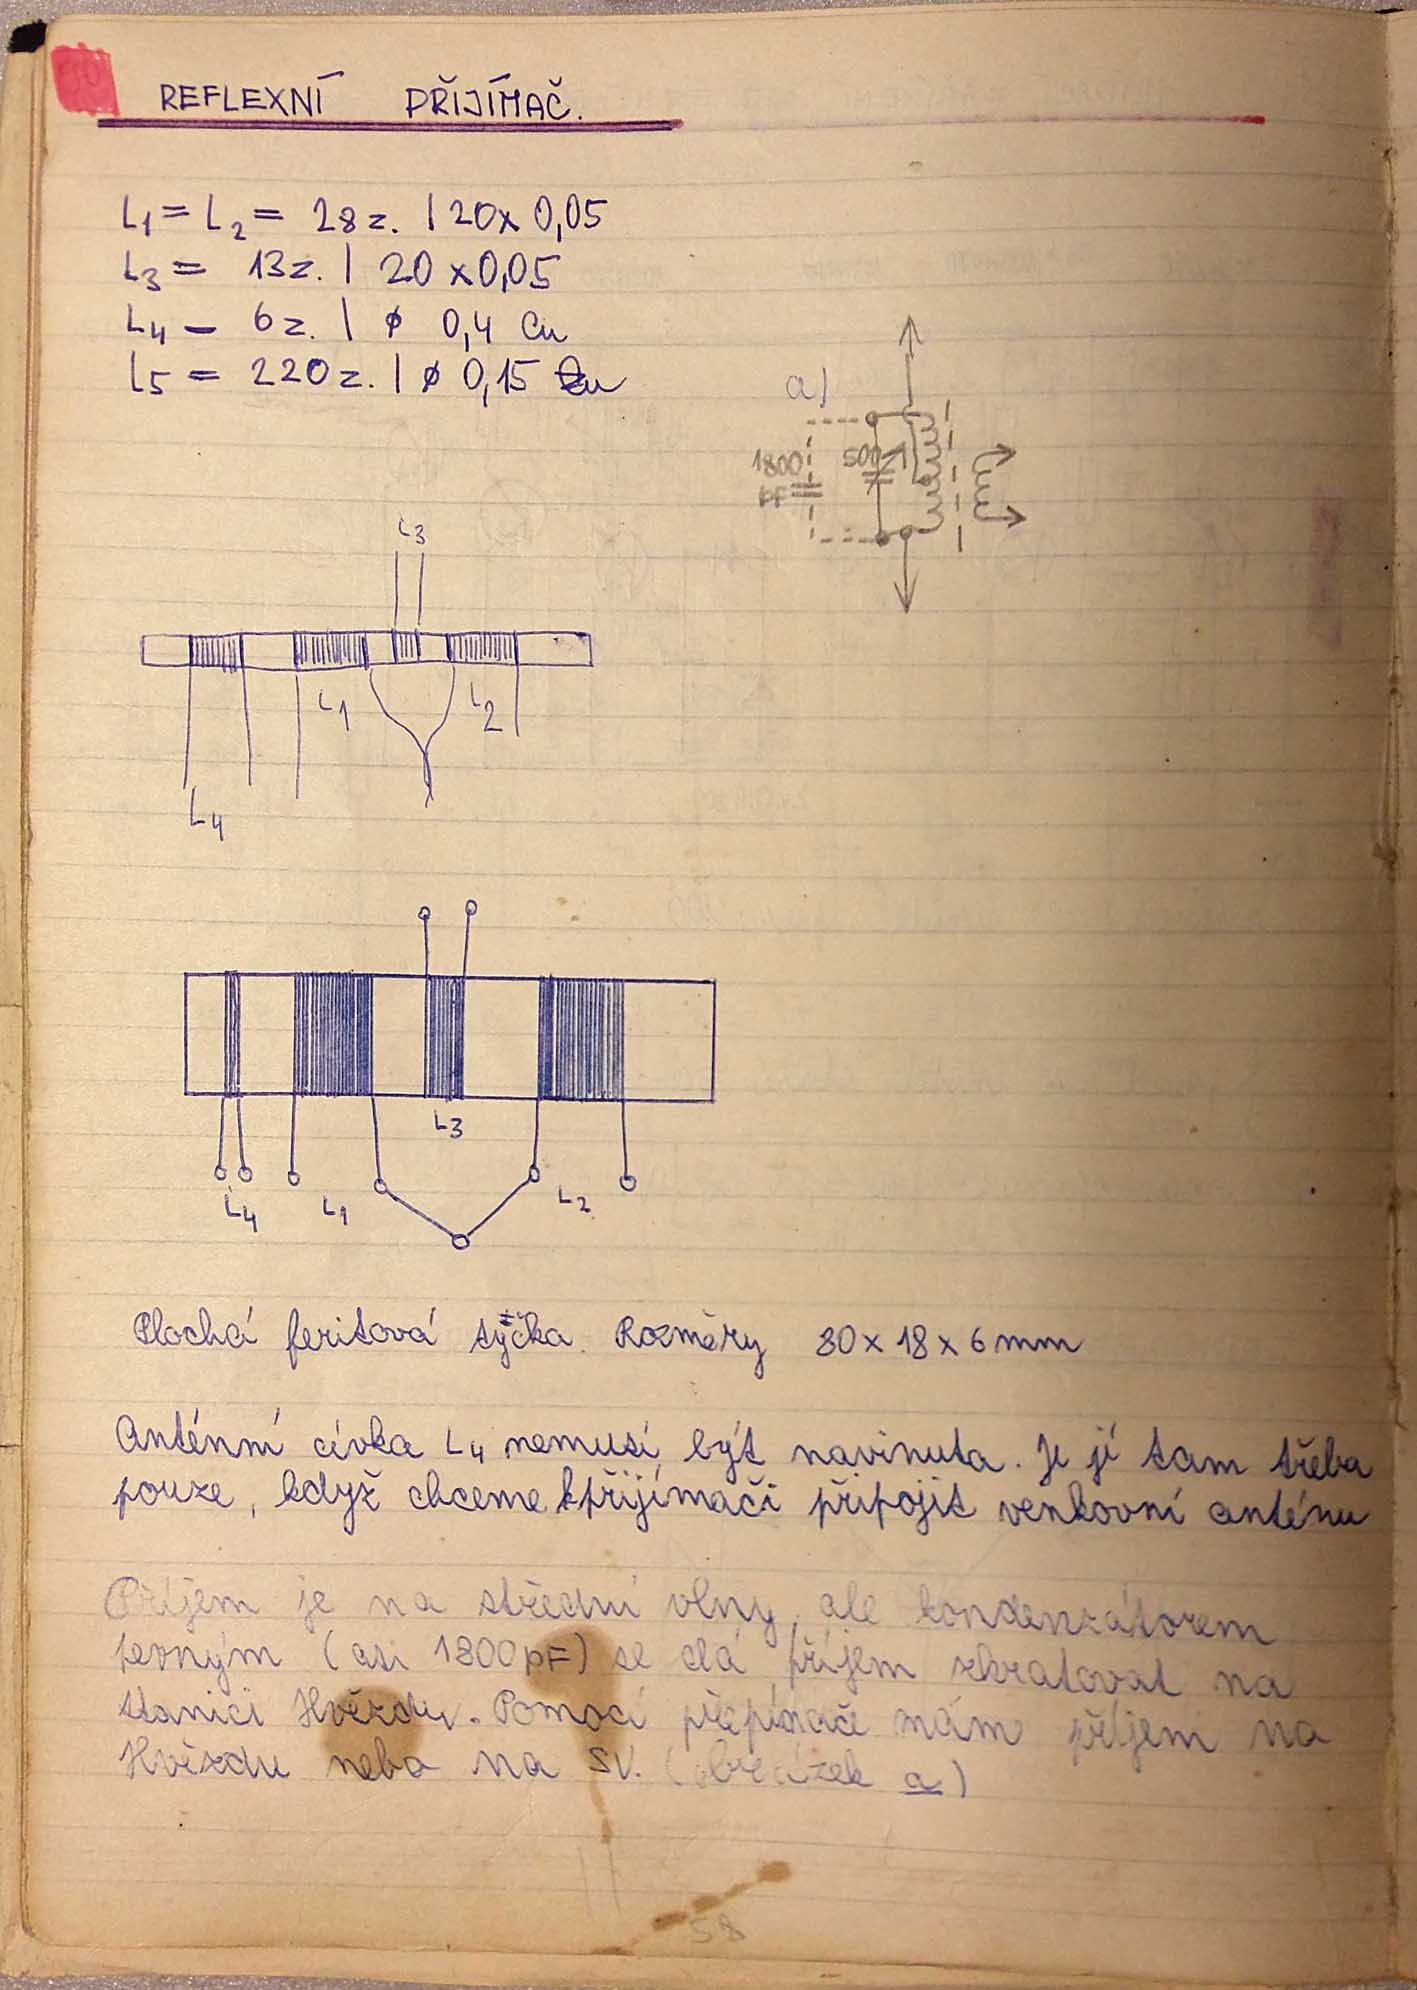 REFLEXNÍ PŘIJÍMAČ.
L1 = L2 = 28 z. | 20x 0,05
L3 = 13 z. | 20 x 0,05
L4 – 6 z. | ø 0,4 Cu
L5 = 220 z. | ø 0,15 Cu
a)
1800
pF
500
L3
L1
L2
L4
L3
L4
L1
L2
Plochá feritová tyčka. Rozměry 80 x 18 x 6 mm
Anténní cívka L4 nemusí být navinuta. Je jí tam třeba
pouze, když chceme k přijímači připojit venkovní anténu
Příjem je na střední vlny, ale kondenzátorem
pevným (asi 1800 pF) se dá příjem zkratovat na
stanici Hvězdu. Pomocí přepínače mám příjem na
Hvězdu nebo na SV. (obrázek a)
58